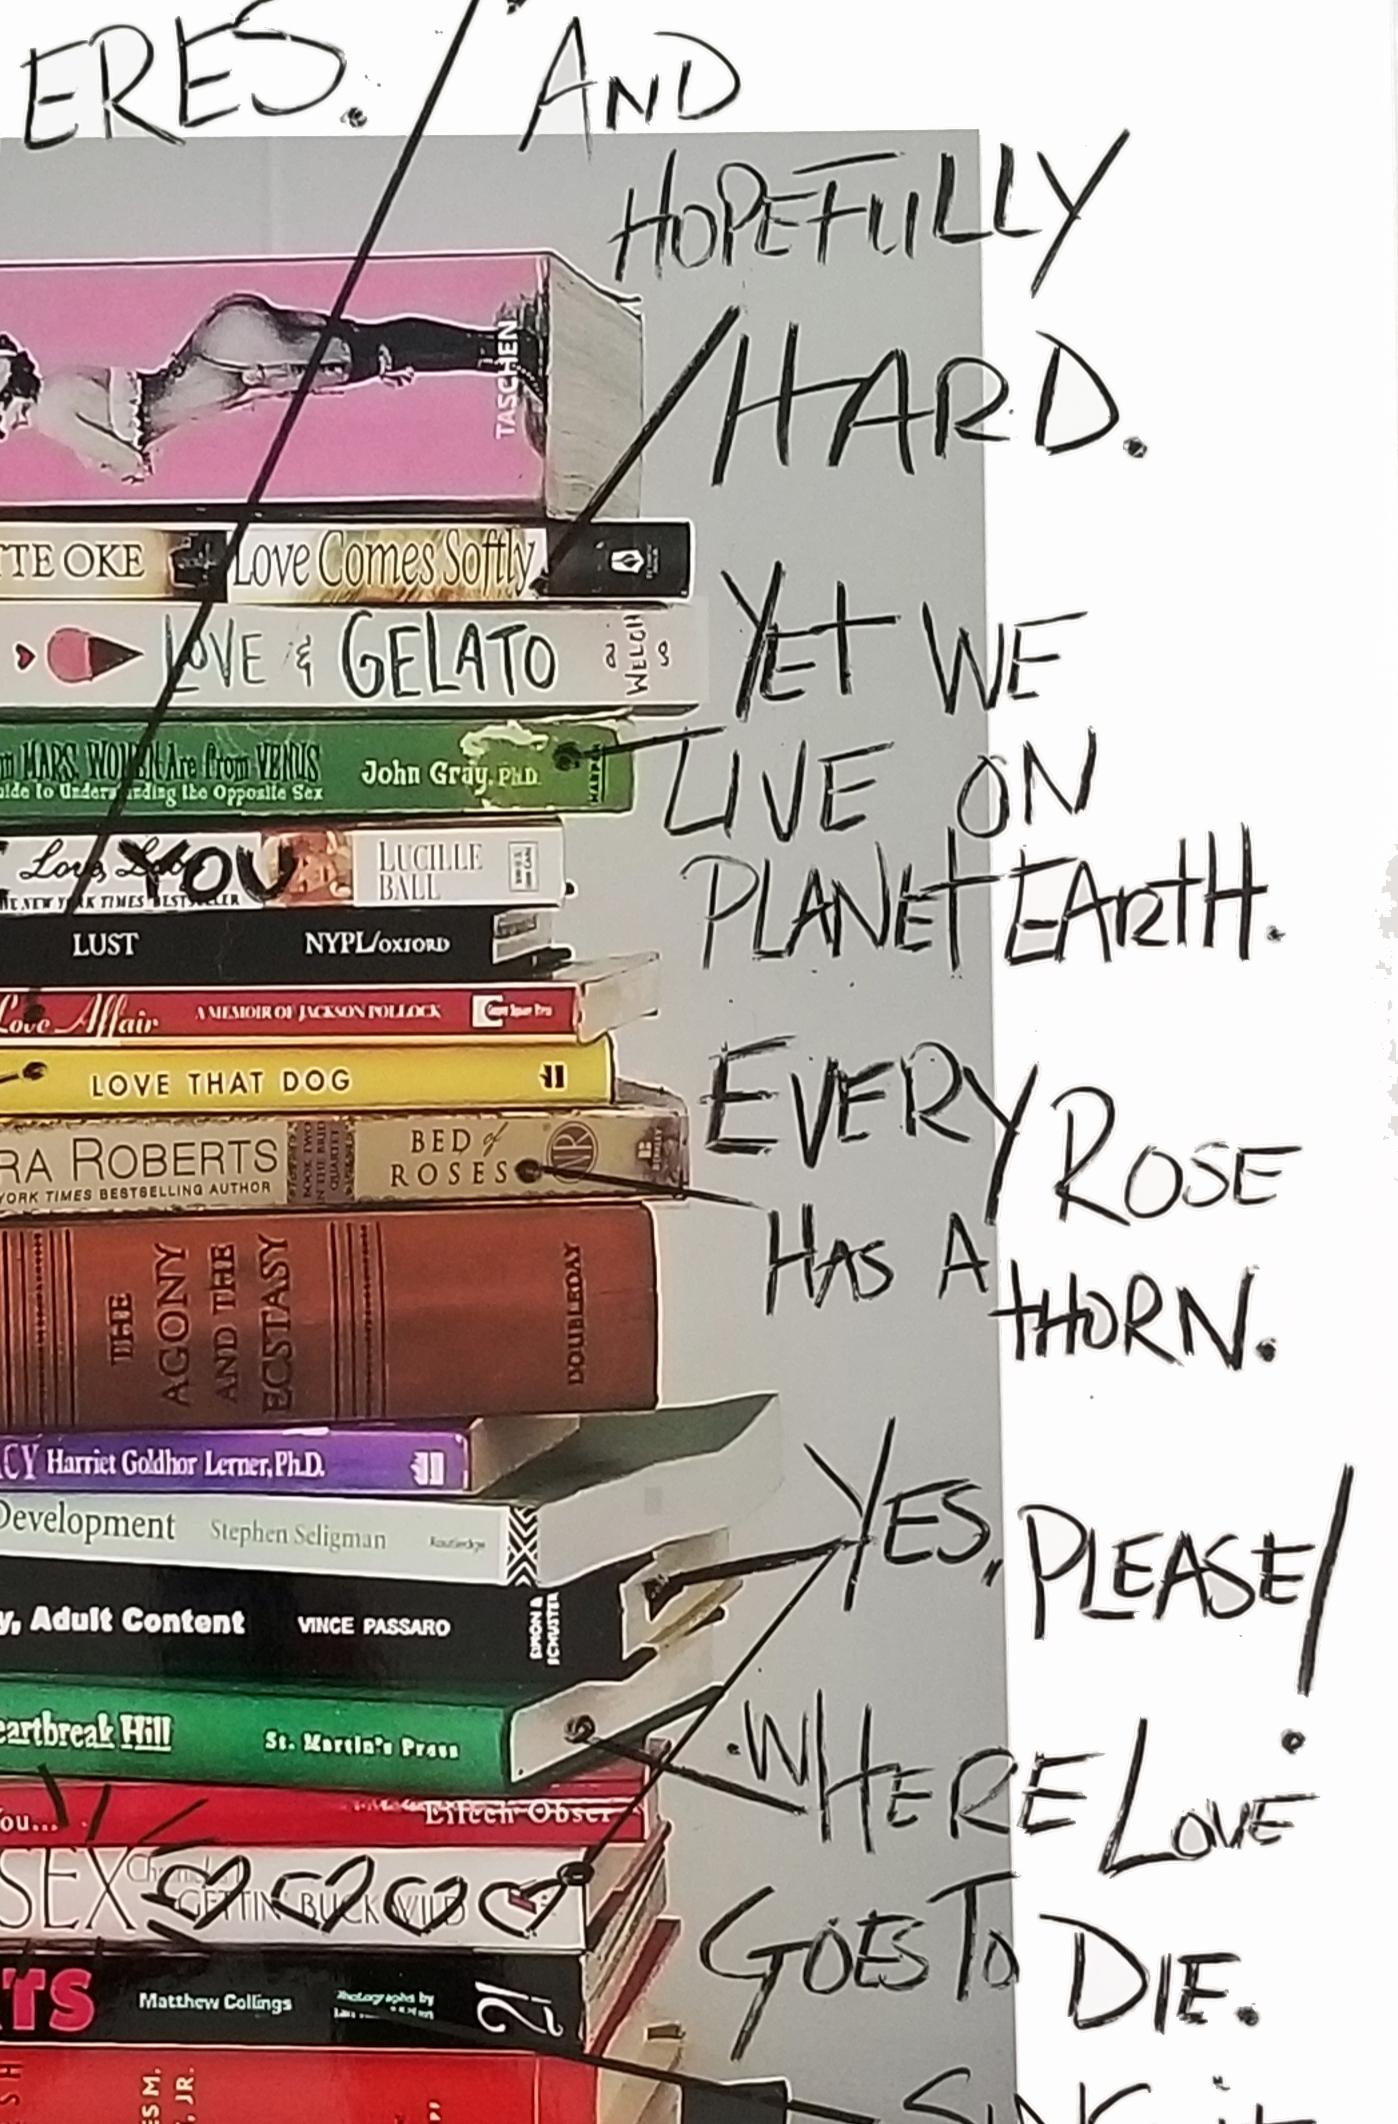 ERES. AND
HOPEFULLY
HARD.
TASCHEN
TTE OKE Love Comes Softly
LOVE & GELATO WELCH
YET WE
LIVE ON
PLANET EARTH.
MARS, WOMEN Are from VENUS John Gray, Ph.D.
ide to Understanding the Opposite Sex HARPER
Love, YOU LUCILLE
BALL
THE NEW YORK TIMES BESTSELLER
LUST NYPL/OXFORD
Love Affair A MEMOIR OF JACKSON POLLOCK
LOVE THAT DOG
EVERY ROSE
HAS A
THORN.
RA ROBERTS BED of
ROSES NR
YORK TIMES BESTSELLING AUTHOR
BOOK TWO
IN THE BRIDE
QUARTET
THE
AGONY
AND THE
ECSTASY
DOUBLEDAY
ACY Harriet Goldhor Lerner, Ph.D.
Development Stephen Seligman Routledge
YES, PLEASE!
y, Adult Content VINCE PASSARO SIMON &
SCHUSTER
eartbreak Hill St. Martin's Press
WHERE LOVE
GOES TO
DIE.
ou... Eileen Obser
SEX GETTIN' BUCK WILD
TS Matthew Collings Photographs by 21
SING it
ES M.
, JR.